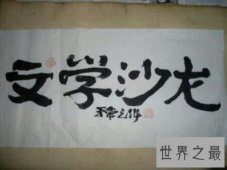 文学沙龙
世界之最